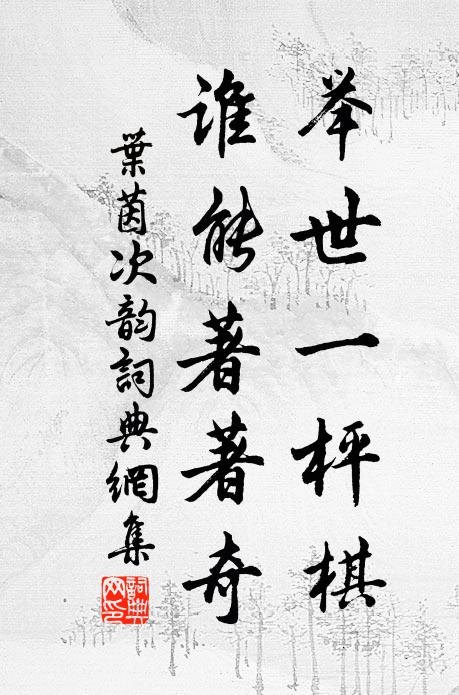 举世一枰棋
谁能著著奇
葉茵次韵詞典網集
詞典